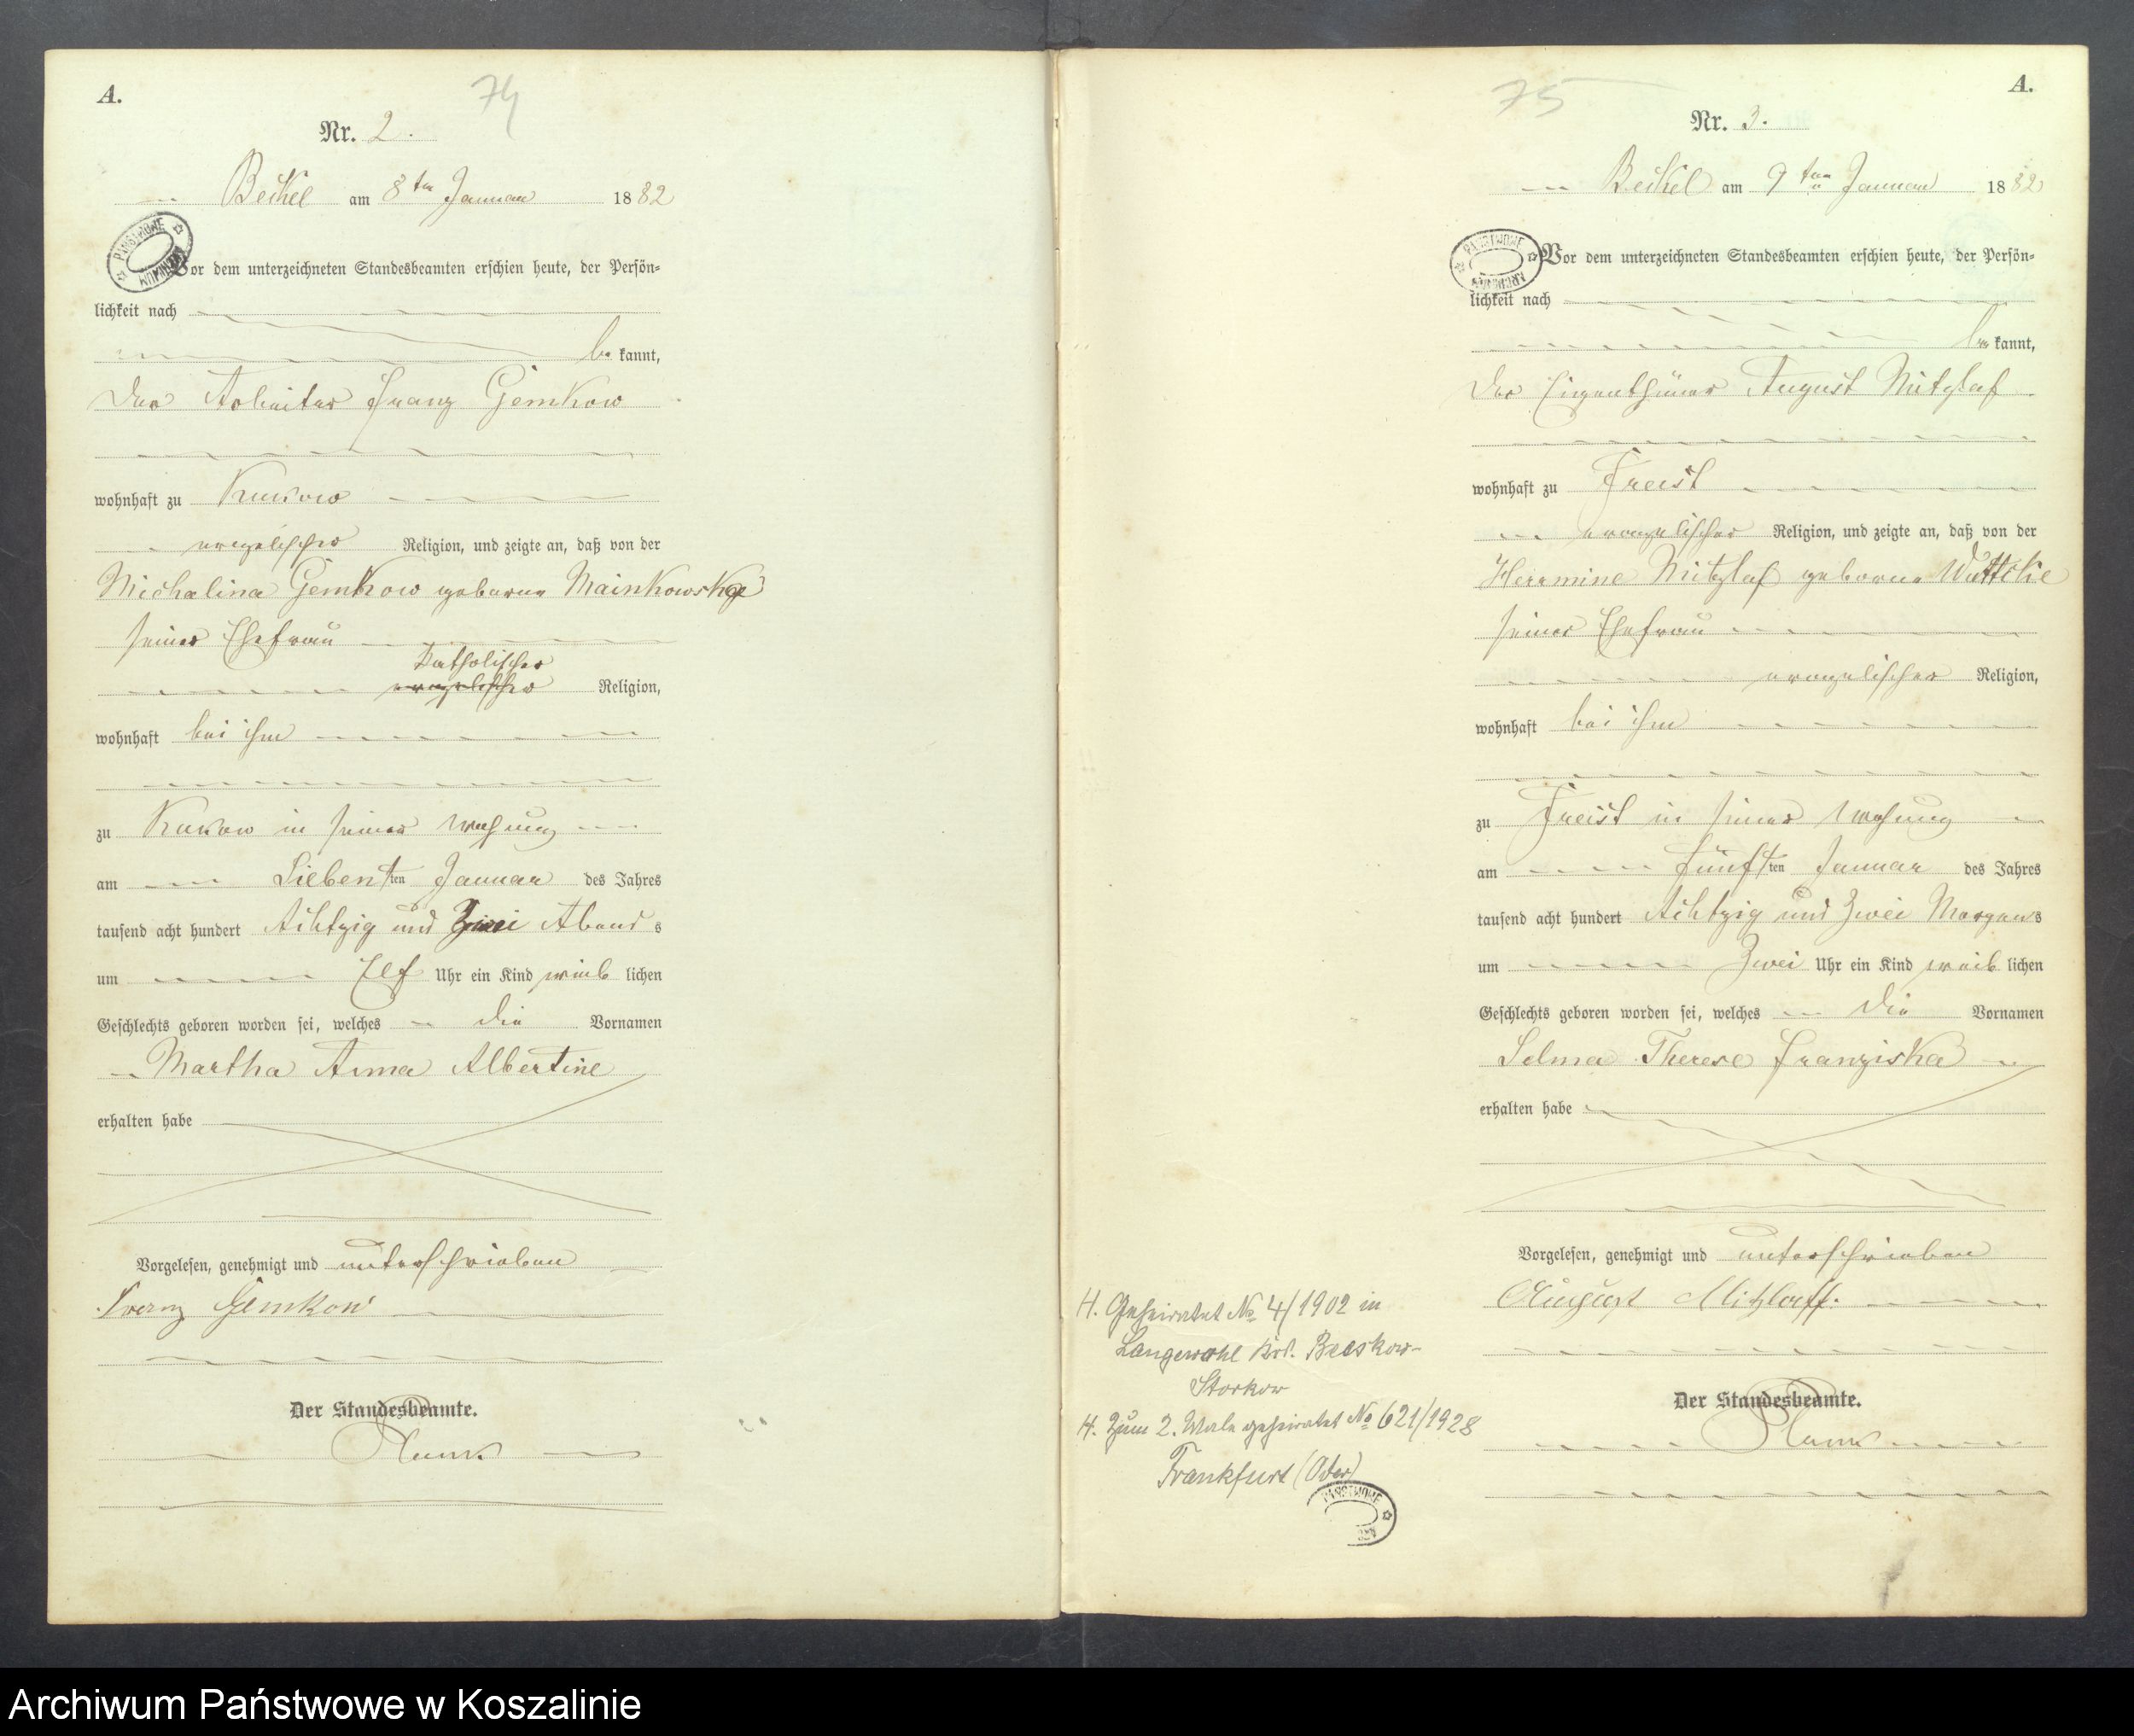 A.
74
Nr. 2.
Beckel am 8ten Januar 1882
PANSTWOWE ARCHIWUM
Vor dem unterzeichneten Standesbeamten erschien heute, der Persön-
lichkeit nach
be kannt,
der Arbeiter Franz Gemkow
wohnhaft zu Kukow
evangelischer Religion, und zeigte an, daß von der
Michalina Gemkow geborene Mainkowska
seiner Ehefrau
katholischer
evangelischer Religion,
wohnhaft bei ihm
zu Kukow in seiner Wohnung
am Siebenten Januar des Jahres
tausend acht hundert Achtzig und Zwei Abends
um Elf Uhr ein Kind weib lichen
Geschlechts geboren worden sei, welches die Vornamen
Martha Anna Albertine
erhalten habe
Vorgelesen, genehmigt und unterschrieben
Franz Gemkow
Der Standesbeamte.
A.
75
Nr. 3.
Beckel am 9ten Januar 1882
PANSTWOWE ARCHIWUM
Vor dem unterzeichneten Standesbeamten erschien heute, der Persön-
lichkeit nach
be kannt,
der Eigenthümer August Mitzlaf
wohnhaft zu Freist
evangelischer Religion, und zeigte an, daß von der
Hermine Mitzlaf geborene Wuttcke
seiner Ehefrau
evangelischer Religion,
wohnhaft bei ihm
zu Freist in seiner Wohnung
am Fünften Januar des Jahres
tausend acht hundert Achtzig und Zwei Morgens
um Zwei Uhr ein Kind weib lichen
Geschlechts geboren worden sei, welches die Vornamen
Selma Therese Franziska
erhalten habe
Vorgelesen, genehmigt und unterschrieben
August Mitzlaff.
Der Standesbeamte.
H. Geheiratet No 4/1902 in
Langewahl Krs. Beeskow-
Storkow
H. Zum 2. Male geheiratet No 621/1928
Frankfurt (Oder)
PANSTWOWE
Archiwum Państwowe w Koszalinie